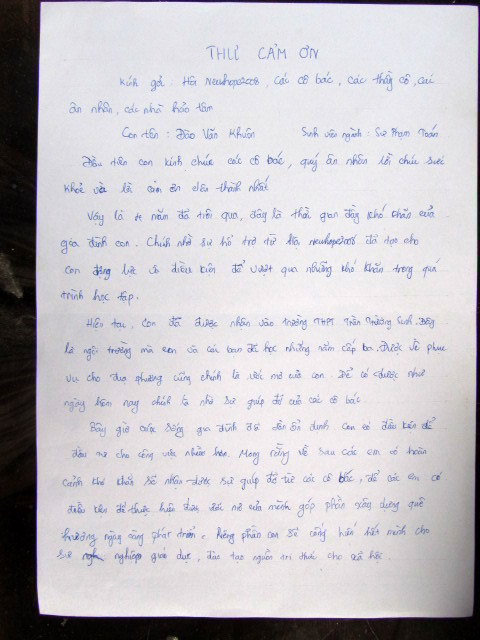 THƯ CẢM ƠN
Kính gởi: Hội newhope2008, Các cô bác, các thầy cô, các
ân nhân, các nhà hảo tâm
Con tên : Đào Văn Khuôn Sinh viên ngành : Sư Phạm Toán
Đầu tiên con kính chúc các cô bác, quý ân nhân lời chúc sức
khoẻ và lời cảm ơn chân thành nhất
Vậy là 4 năm đã trôi qua, đây là thời gian đầy khó khăn của
gia đình con. Chính nhờ sự hỗ trợ từ Hội newhope2008 đã tạo cho
con động lực và điều kiện để vượt qua những khó khăn trong quá
trình học tập.
Hiện tại, con đã được nhận vào trường THPT Trần Trường Sinh. Đây
là ngôi trường mà con và các bạn đã học những năm cấp ba. Được về phục
vụ cho địa phương cũng chính là ước mơ của con. Để có được như
ngày hôm nay chính là nhờ sự giúp đỡ của các cô bác
Bây giờ cuộc sống gia đình đã dần ổn định con có điều kiện để
đầu tư cho công việc nhiều hơn. Mong rằng về sau các em có hoàn
cảnh khó khăn sẽ nhận được sự giúp đỡ từ các cô bác, để các em có
điều kiện để thực hiện được ước mơ của mình góp phần xây dựng quê
hương ngày càng phát triển. Riêng phần con sẽ cống hiến hết mình cho
sự nghiệp giáo dục, đào tạo nguồn tri thức cho xã hội.